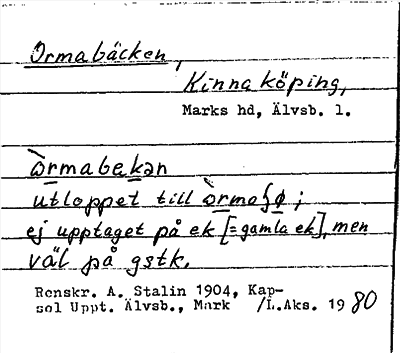 Ormabäcken,
Kinna köping,
Marks hd, Älvsb. l.
òrmabekən
utloppet till òrmaʃø ;
ej upptaget på ek [=gamla ek], men
väl på gstk.
Renskr. A. Stalin 1904, Kap-
sel Uppt. Älvsb., Mark /L.Aks. 1980